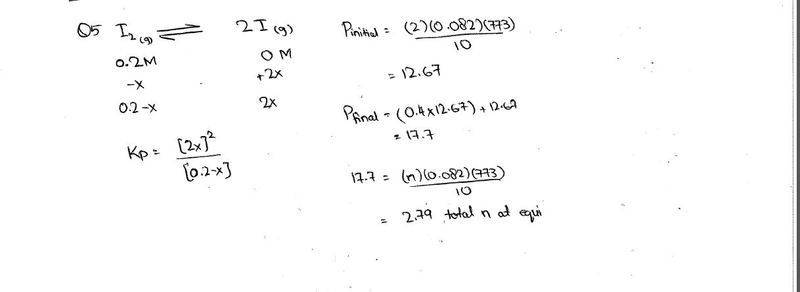 Q5 I₂(g) ⇌ 2I(g)
0.2M 0 M
-x +2x
0.2-x 2x
Kp = [2x]² / [0.2-x]
Pinitial = (2)(0.082)(773) / 10
= 12.67
Pfinal = (0.4x12.67) + 12.67
= 17.7
17.7 = (n)(0.082)(773) / 10
= 2.79 total n at equi